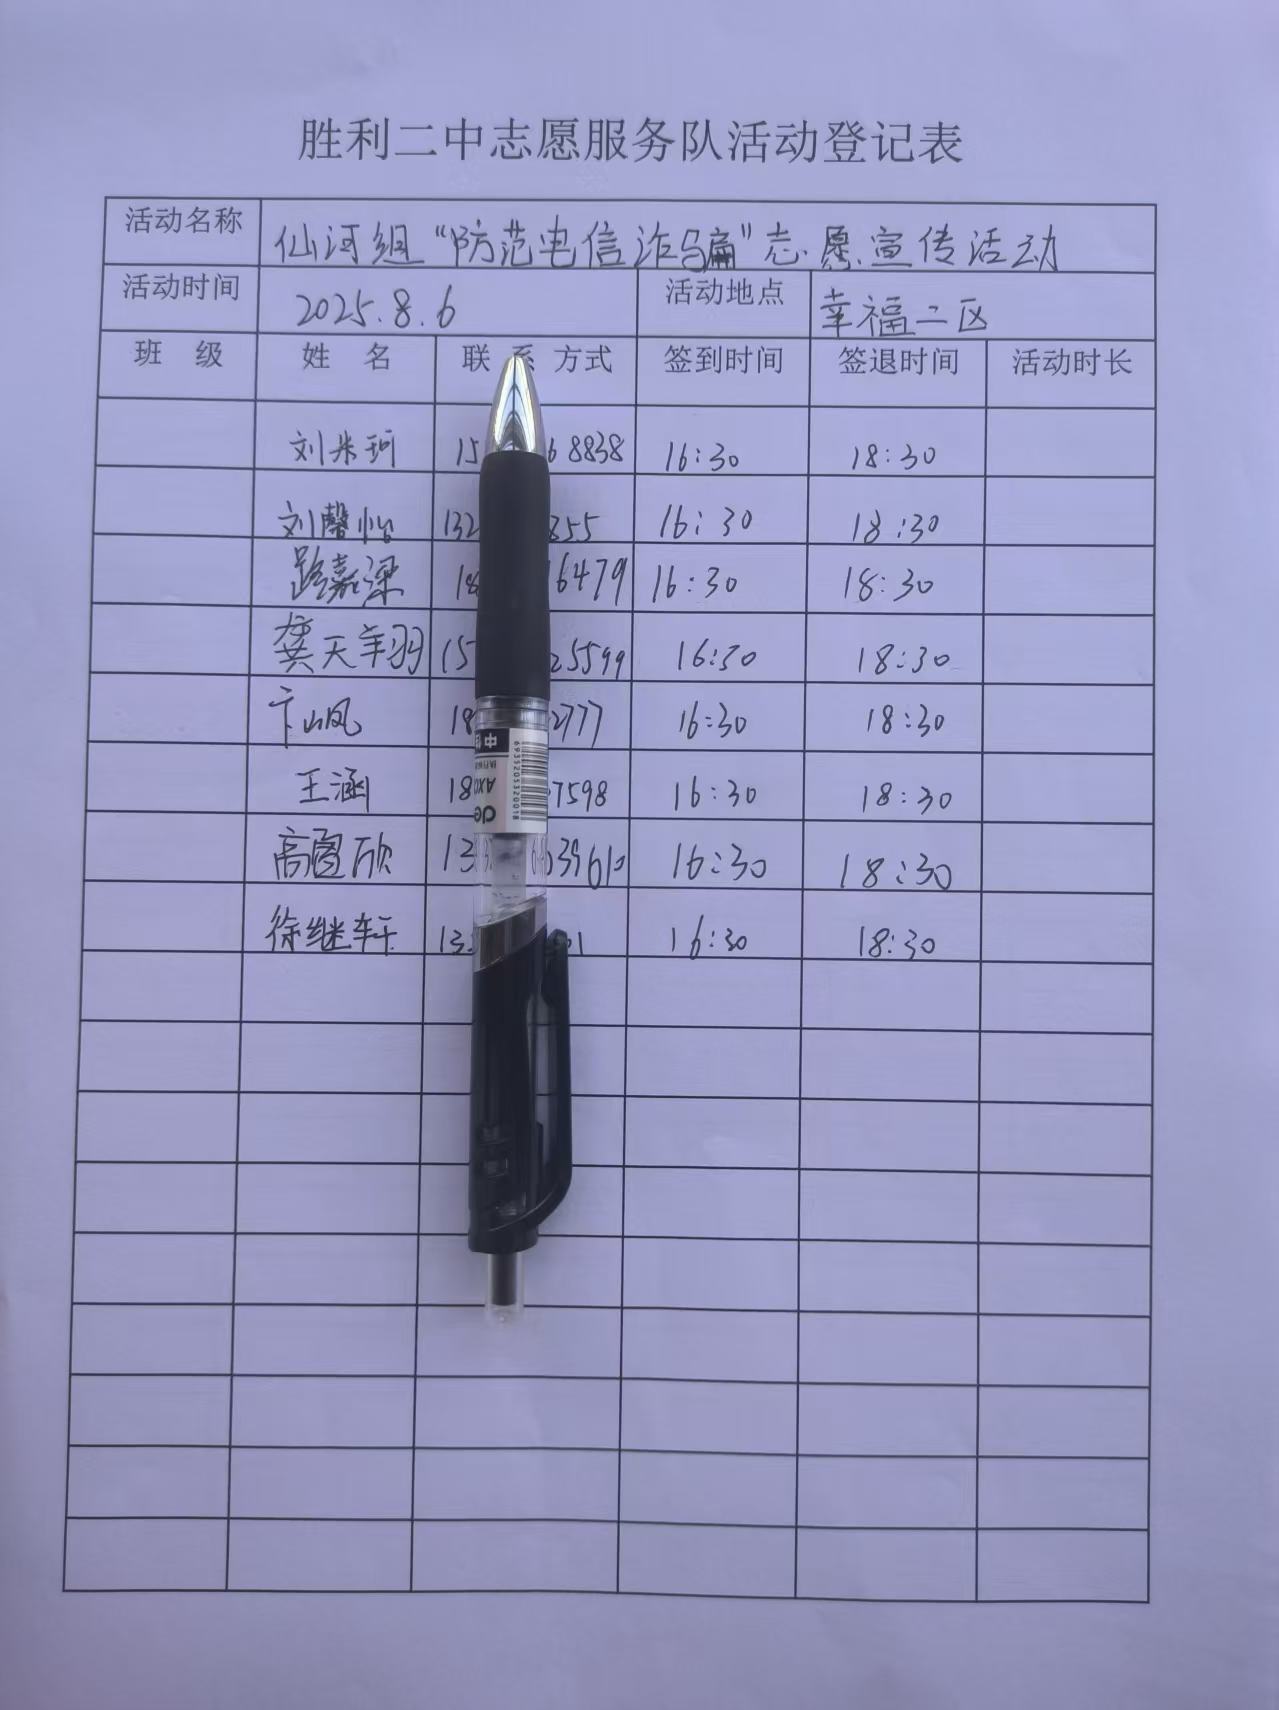 胜利二中志愿服务队活动登记表
活动名称 仙河组“防范电信诈骗”志愿宣传活动
活动时间 2025.8.6 活动地点 幸福二区
班 级 姓 名 联 系 方式 签到时间 签退时间 活动时长
刘米珂 15 6 8838 16:30 18:30
刘馨怡 132 855 16:30 18:30
路嘉深 18 16479 16:30 18:30
龚天羽 15 25599 16:30 18:30
卞山凤 18 2777 16:30 18:30
王涵 18 7598 16:30 18:30
高 欣 13 3961 16:30 18:30
徐继轩 13 01 16:30 18:30
6935205320018